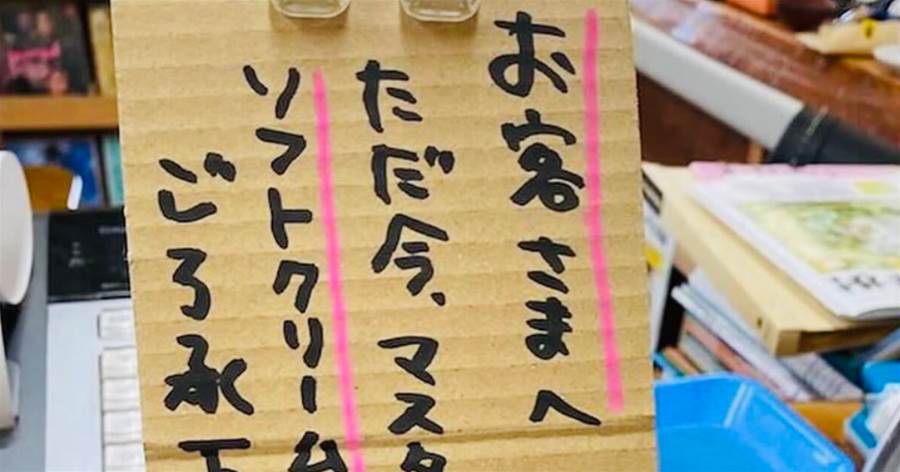 お客さまへ
ただ今、マスタ
ソフトクリー
ごろ承